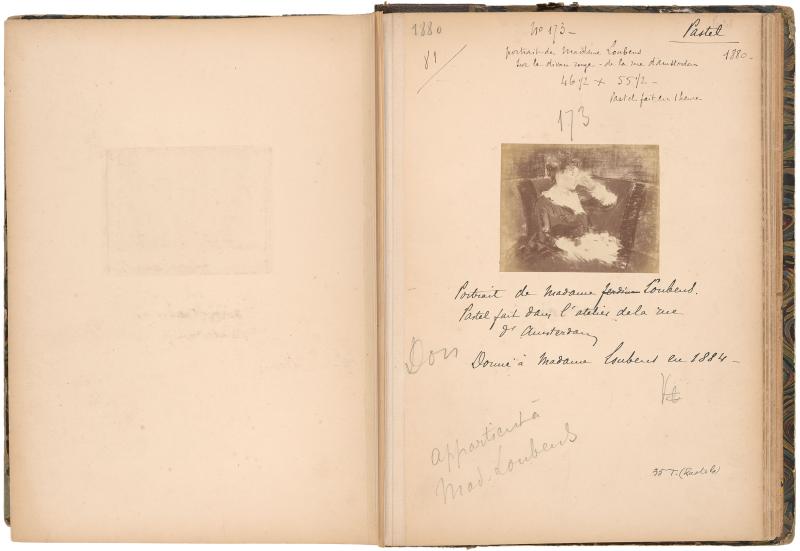 1880
81
Nº 173 -
Pastel
portrait de Madame Loubens
sur le divan rouge - de la rue d'Amsterdam
1880 -
46 1/2 x 55 1/2 -
Pastel fait en 1 heure
173
Portrait de Madame Loubens.
Pastel fait dans l'atelier de la rue
d'Amsterdam
Don
Donné à Madame Loubens en 1884 -
appartient à
Mad. Loubens
35 T.